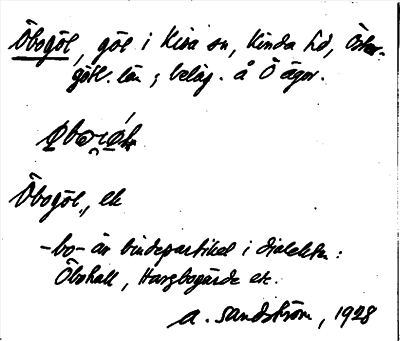 Öbogöl, göl i Kisa sn, Kinda hd, Öster-
götl. län; beläg. å Ö ägor.
Öbogöl, ek
-bo- är bindepartikel i dialekten:
Öbohall, Hargbogärde etc.
A. Sandström, 1928